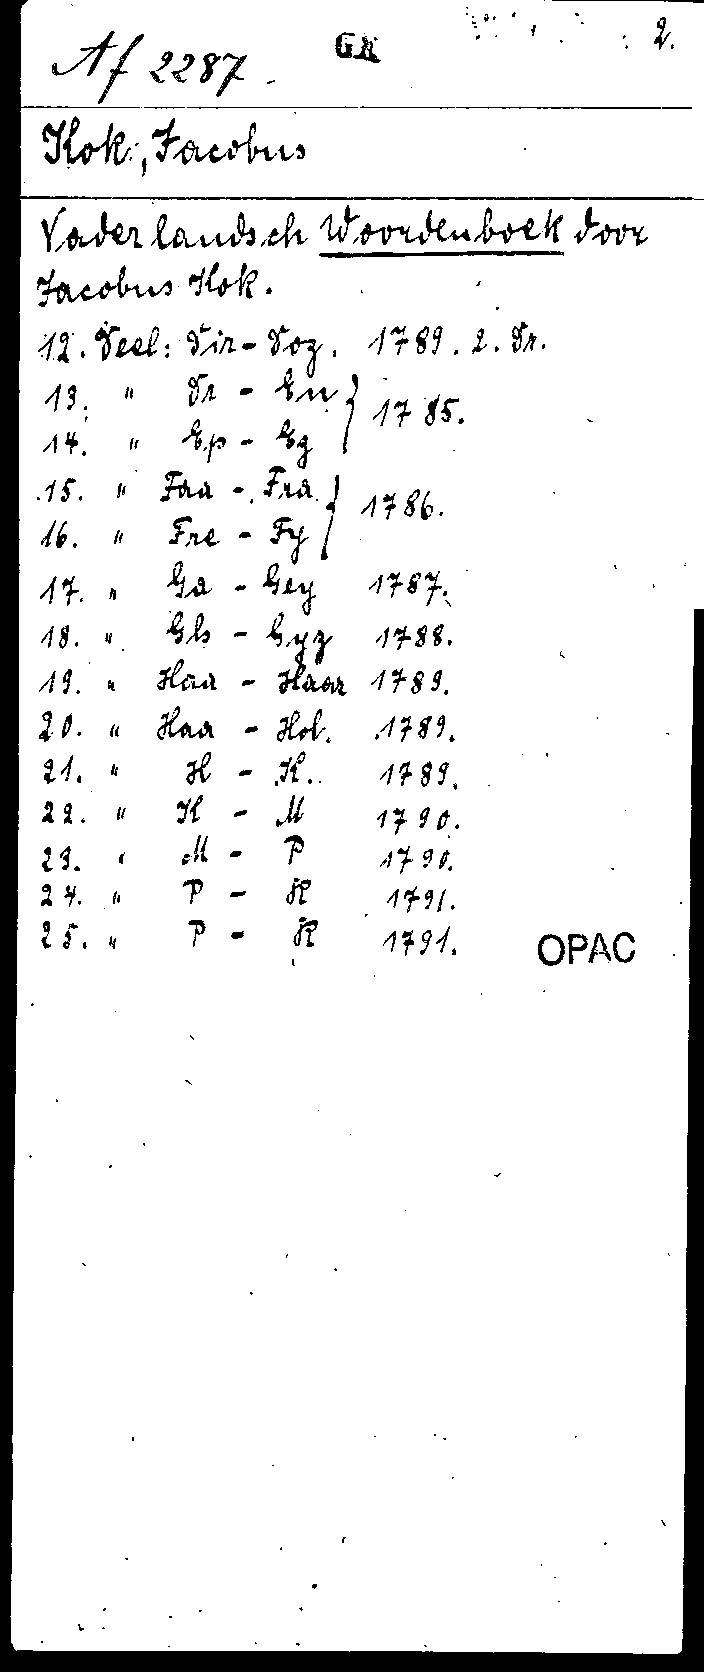 Af 2287
GK
2.
Kok, Jacobus
Vaderlandsch Woordenboek door
Jacobus Kok.
12. Deel: Dir - Doz. 1789. 2. Dr.
13. " Dr - En
1785.
14. " Ep - Eg
15. " Faa - Fra
1786.
16. " Fre - Fy
17. " Ga - Gey 1787.
18. " Gh - Gyz 1788.
19. " Haa - Haar 1789.
20. " Haa - Hol. 1789.
21. " H - K. 1789.
22. " K - M 1790.
23. " M - P 1790.
24. " P - R 1791.
25. " P - R 1791.
OPAC